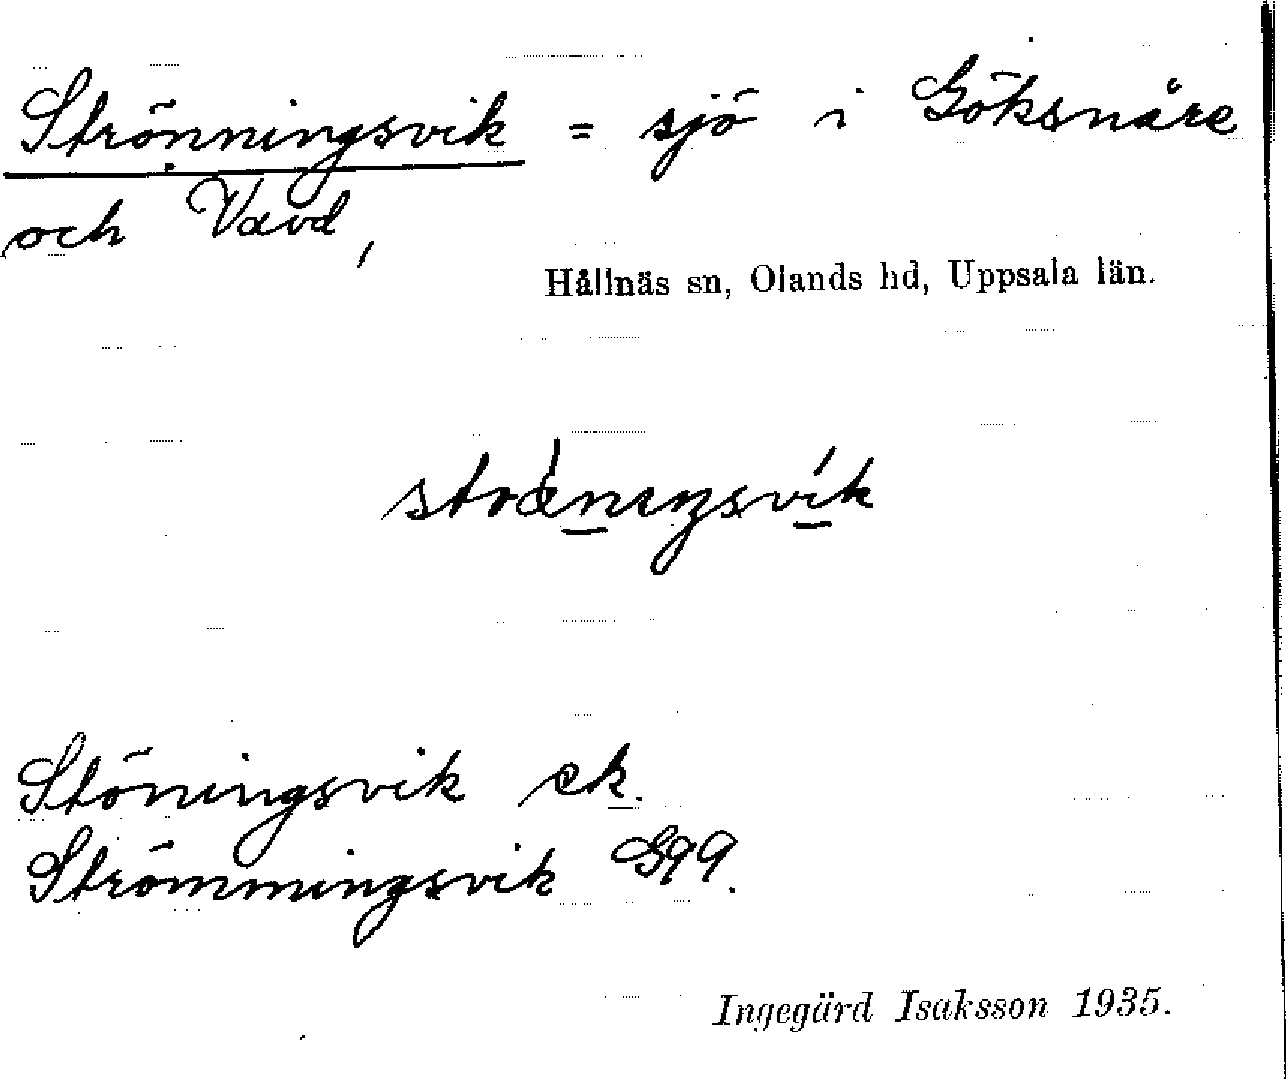 Strönningsvik = sjö i Göksnåre
och Vavd,
Hållnäs sn, Olands hd, Uppsala län.
Stöningsvik ek.
Strömmingsvik
Ingegärd Isaksson 1935.